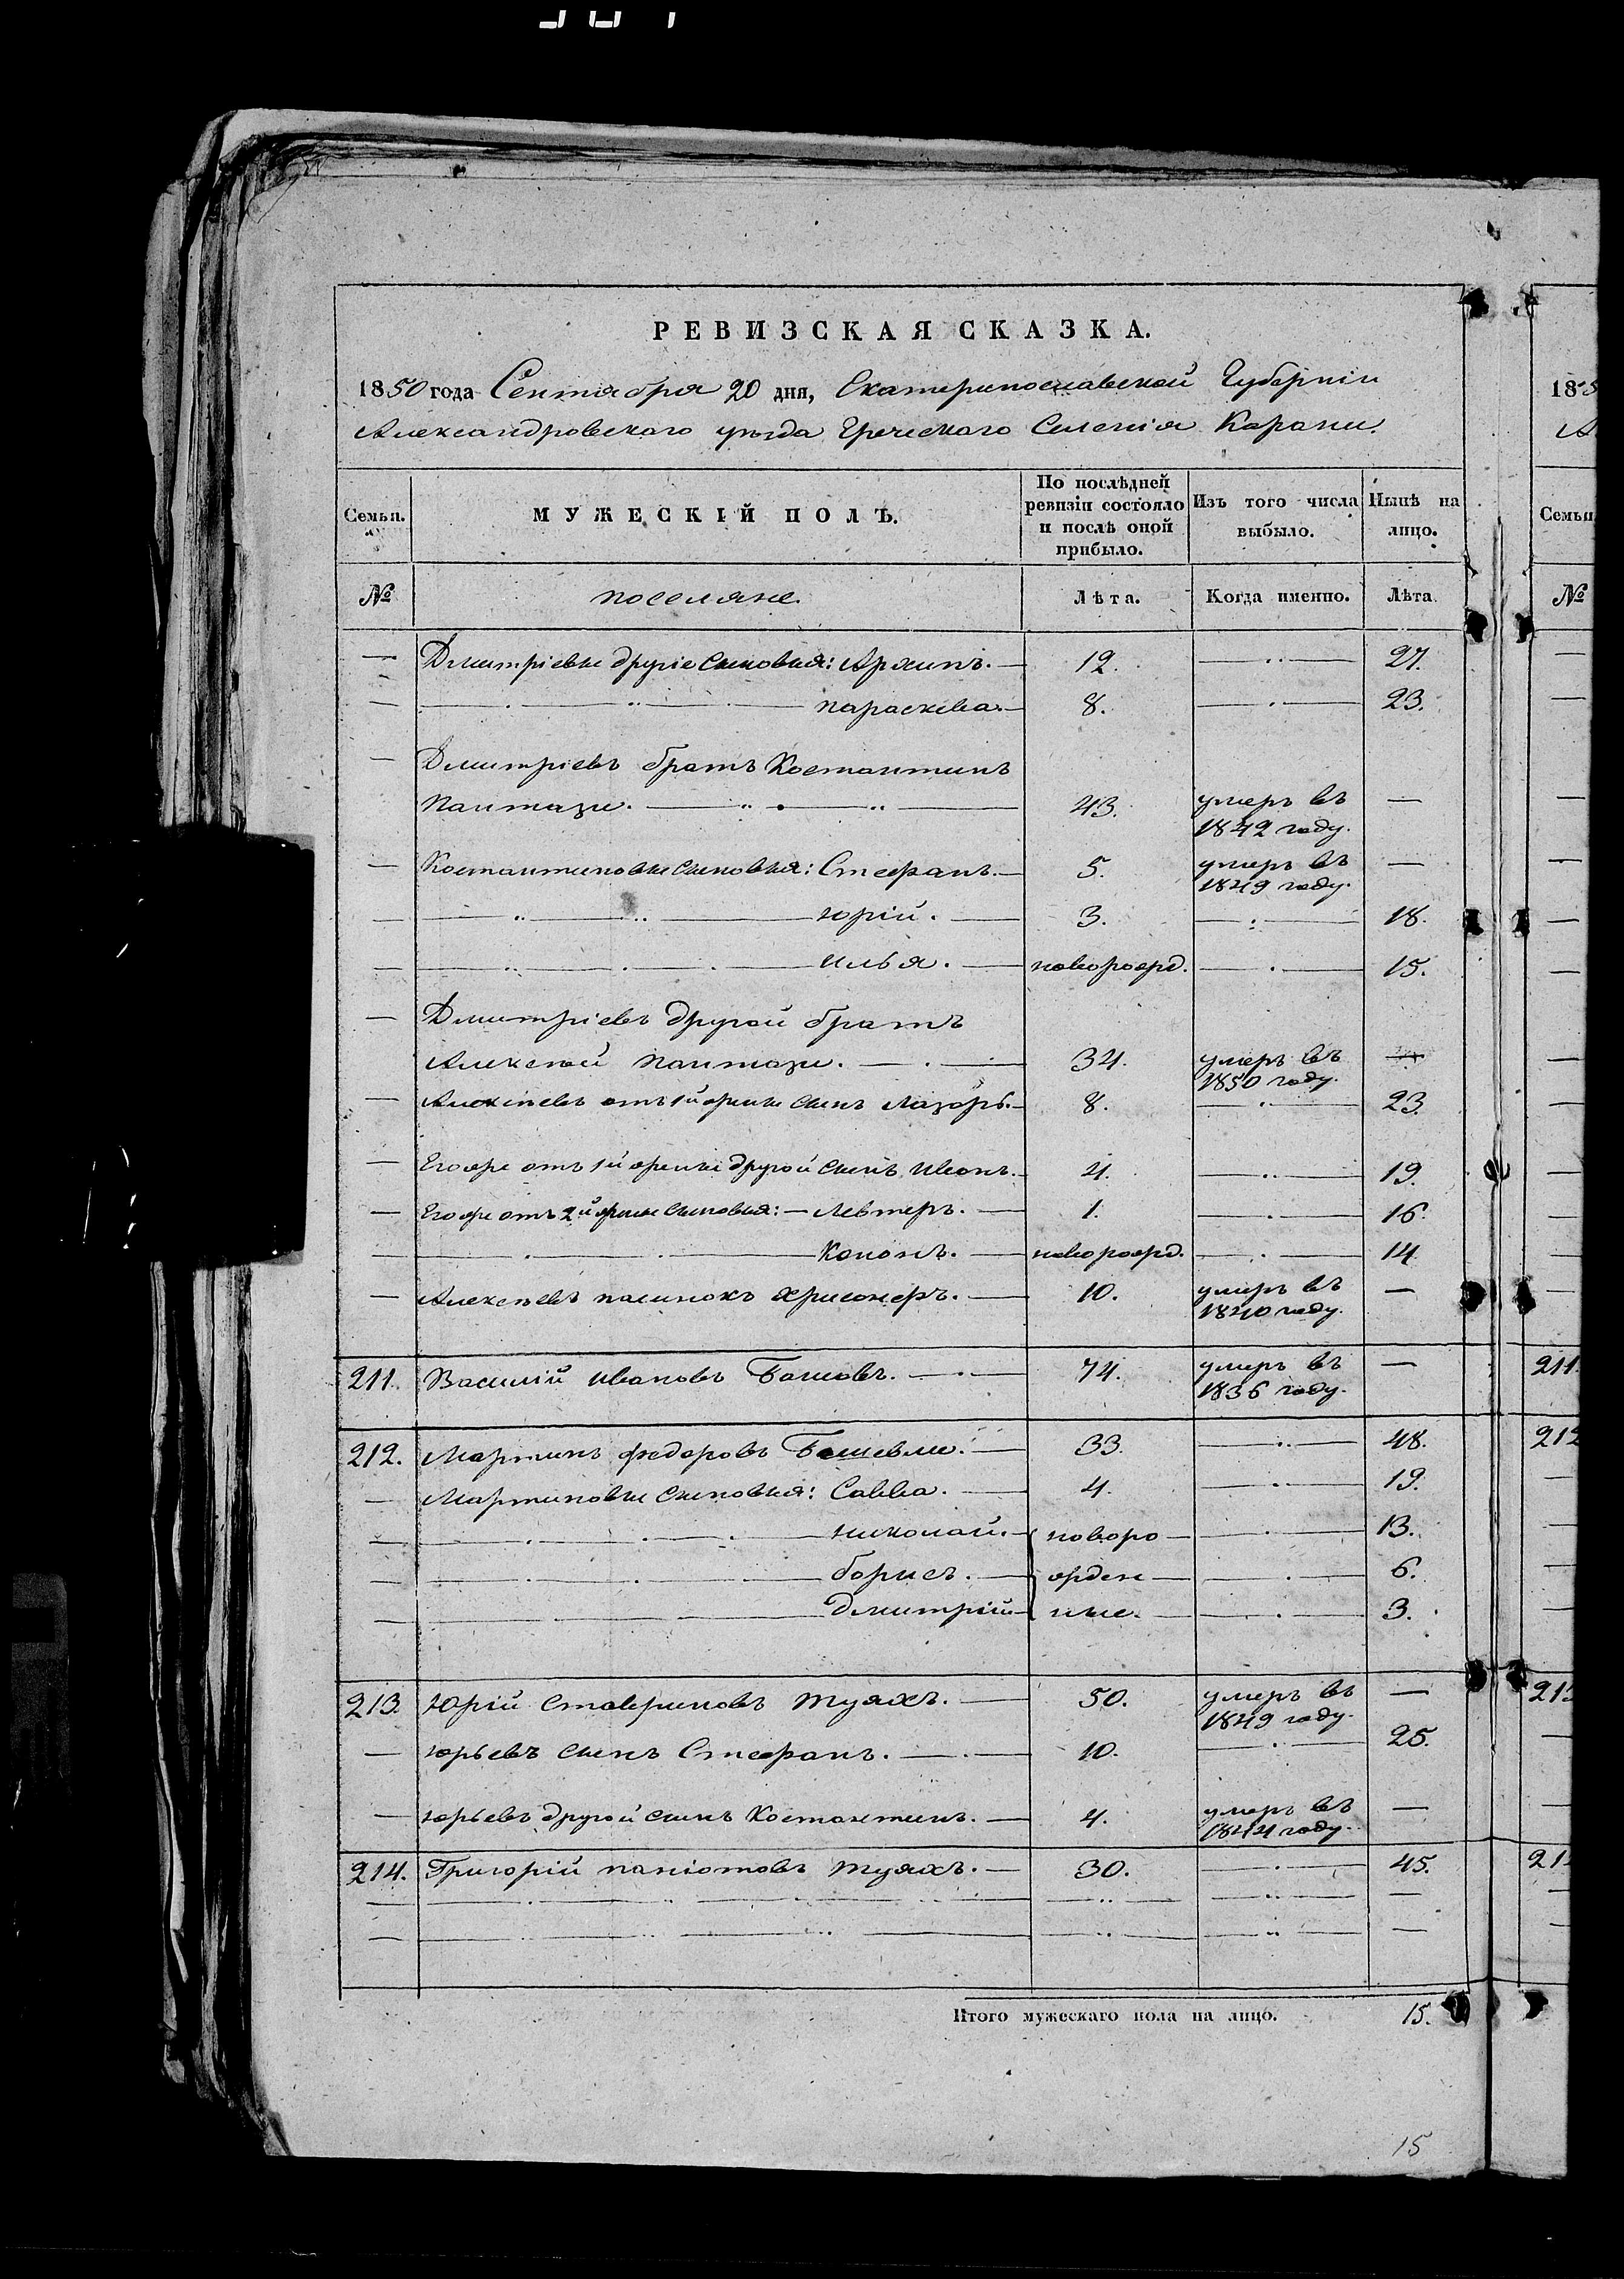 РЕВИЗСКАЯ СКАЗКА.
1850 года Сентября 20 дня, Екатеринославской Губерніи
Александровского уѣзда Греческого Селенія Карани.
Семьи.
МУЖЕСКІЙ ПОЛЪ.
По послѣдней ревизіи состояло и послѣ оной прибыло.
Изъ того числа выбыло.
Нынѣ на лицо.
№ поселяне. Лѣта. Когда именно. Лѣта.
— Дмитріевы другіе сыновья: Архипъ. — 12. — 27.
— Параскева. — 8. — 23.
— Дмитріевъ братъ Костантинъ
Пантази. — 43. умеръ въ 1842 году. —
— Костантиновы сыновья: Стефанъ. — 5. умеръ въ 1849 году. —
— Юрій. — 3. — 18.
— Илья. — новорожд. — 15.
— Дмитріевъ другой братъ
Алексѣй Пантази. — 34. умеръ въ 1850 году. —
— Алексѣевъ отъ 1й жены сынъ Лазорь. — 8. — 23.
— Его же отъ 1й жены другой сынъ Иванъ. — 4. — 19.
— Его же отъ 2й жены сыновья: — Левтеръ. — 1. — 16.
— Кононъ. — новорожд. — 14.
— Алексѣевъ пасынокъ — 10. умеръ въ 1840 году. —
211. Василій Ивановъ — 74. умеръ въ 1836 году. —
212. Мартинъ Федоровъ — 33. — 48.
— Мартиновы сыновья: Савва. — 4. — 19.
— Николай. — новоро — 13.
— Борисъ. — жден — 6.
— Дмитрій — ные. — 3.
213. Юрій Ставриновъ Туяхъ. — 50. умеръ въ 1849 году. —
— Юрьевъ сынъ Стефанъ. — 10. — 25.
— Юрьевъ другой сынъ Костантинъ. — 4. умеръ въ 1844 году. —
214. Григорій Паніотовъ Туяхъ. — 30. — 45.
Итого мужескаго пола на лицо. 15.
15
185
А
Семьи
№
211.
212
213
21